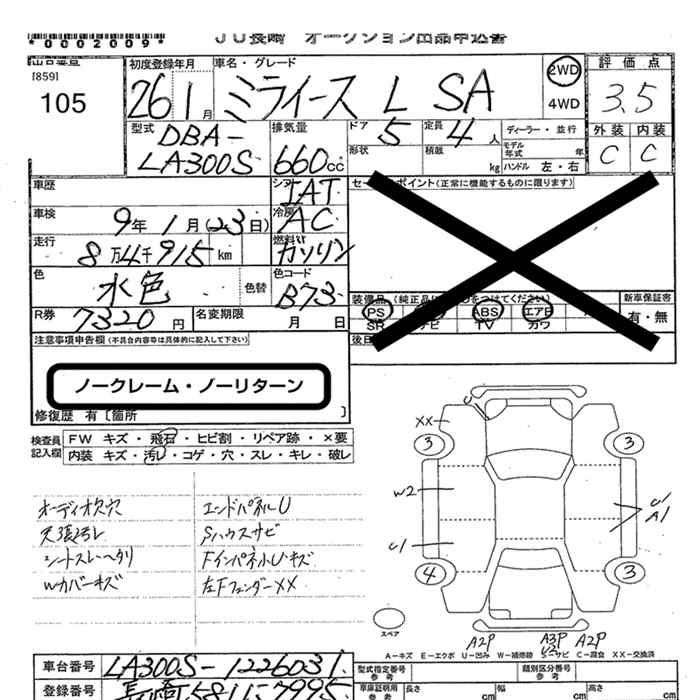 *0002009*
JU長崎 オークション出品申込書
[859]
105
初度登録年月
26 1月
車名・グレード
ミライース L SA
2WD
4WD
評価点
3.5
外装 内装
C C
型式
DBA-
LA300S
排気量
660cc
ドア 5
定員 4人
形状
積載 kg
ディーラー・並行
モデル年式 年
ハンドル 左・右
車歴
シフト
IAT
セールスポイント(正常に機能するものに限ります)
車検
9年 1月(23日)
冷房
AC
走行
8万4千915km
燃料
ガソリン
色
水色
色替
色コード
B73
装備品 (純正品に○をつけてください)
新車保証書
有・無
PS ABS エアB
SR ナビ TV カワ
R券
7320円
名変期限
月 日
注意事項申告欄(不具合内容等は具体的に記入して下さい)
ノークレーム・ノーリターン
修復歴 有〔箇所 〕
検査員記入欄
FW キズ・飛石・ヒビ割・リペア跡・×要
内装 キズ・汚レ・コゲ・穴・スレ・キレ・破レ
オーディオ欠穴
エンドパネルU
天張汚レ
Sハウスサビ
シートスレヘタリ
Fインパネ小Uキズ
Wカバーキズ
左Fフェンダー××
U
××
3 3
W2
U1
A1
U1
4 3
スペア
A2P A3P A2P
A-キズ E-エクボ U-凹み W-補修跡 S-サビ C-腐食 XX-交換済
車台番号
LA300S-1226031
登録番号
長崎581に7995
型式指定番号
参考
類別区分番号
参考
車庫証明用
参考
長さ cm
幅 cm
高さ cm